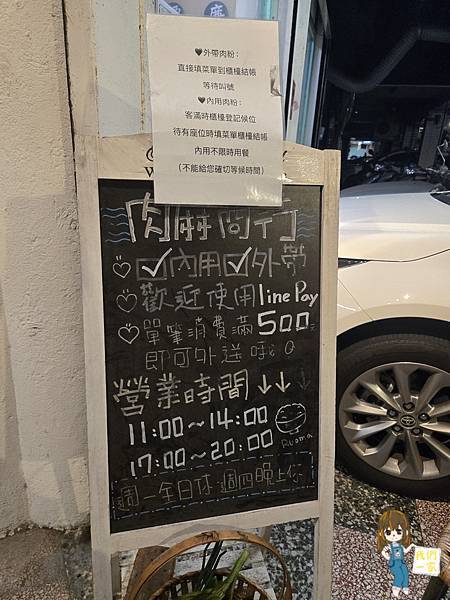 ♥外帶肉粉：
直接填菜單到櫃檯結帳
等待叫號
♥內用肉粉：
客滿時櫃檯登記候位
待有座位時填菜單櫃檯結帳
內用不限時用餐
（不能給您確切等候時間）
肉麻商行
☑內用☑外帶
歡迎使用line Pay
單筆消費滿500
即可外送哦
營業時間↓↓
11:00～14:00
17:00～20:00
Rouma
週一全日休 週四晚上休
我們一家